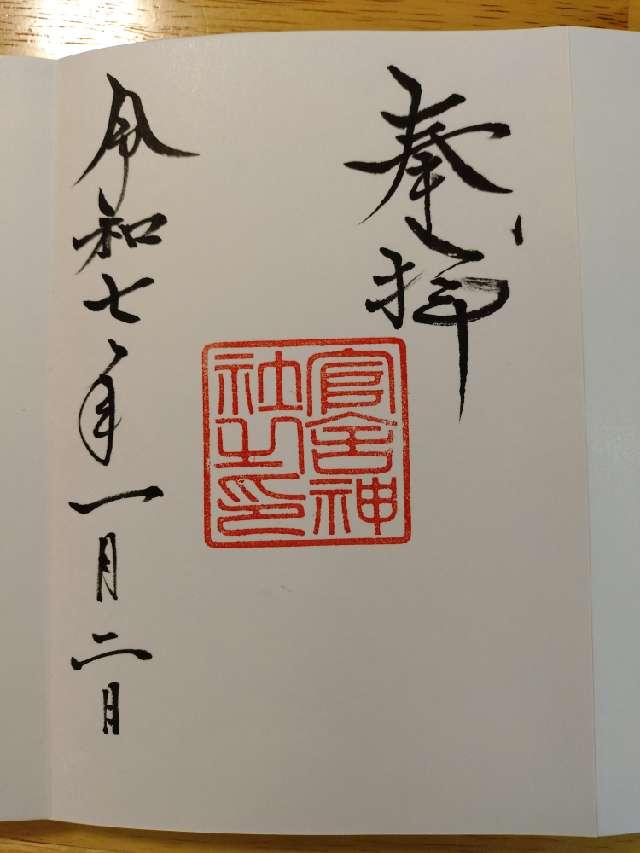 奉拝
官舎神
社之印
令和七年一月二日